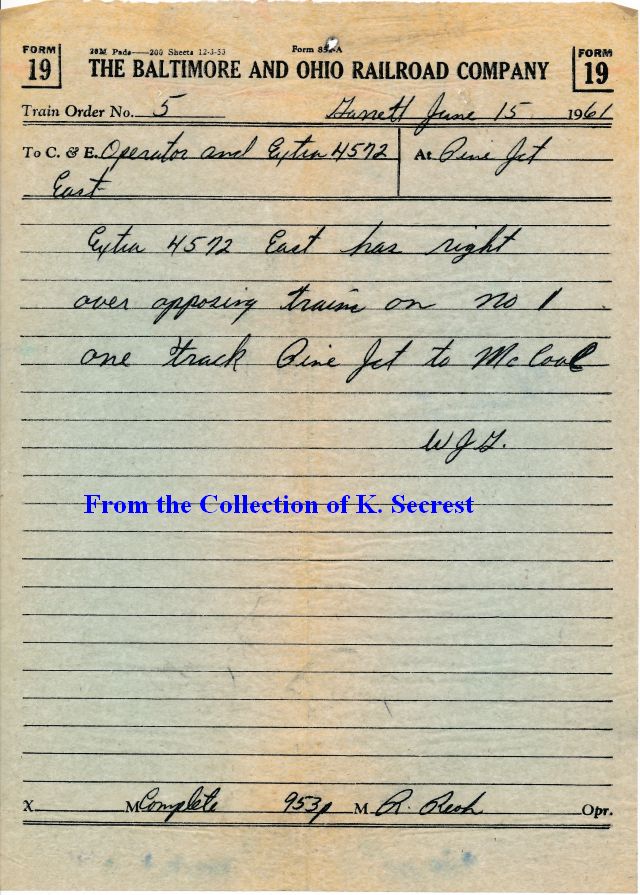 FORM 19
28M Pads—200 Sheets 12-3-53 Form 852-A
FORM 19
THE BALTIMORE AND OHIO RAILROAD COMPANY
Train Order No. 5 Garrett June 15 1961
To C. & E. Operator and Extra 4572 At Pine Jct
East
Extra 4572 East has right
over opposing trains on no 1
one track Pine Jct to McCool
WJG.
From the Collection of K. Secrest
X M Complete 953p M R. Reoh Opr.